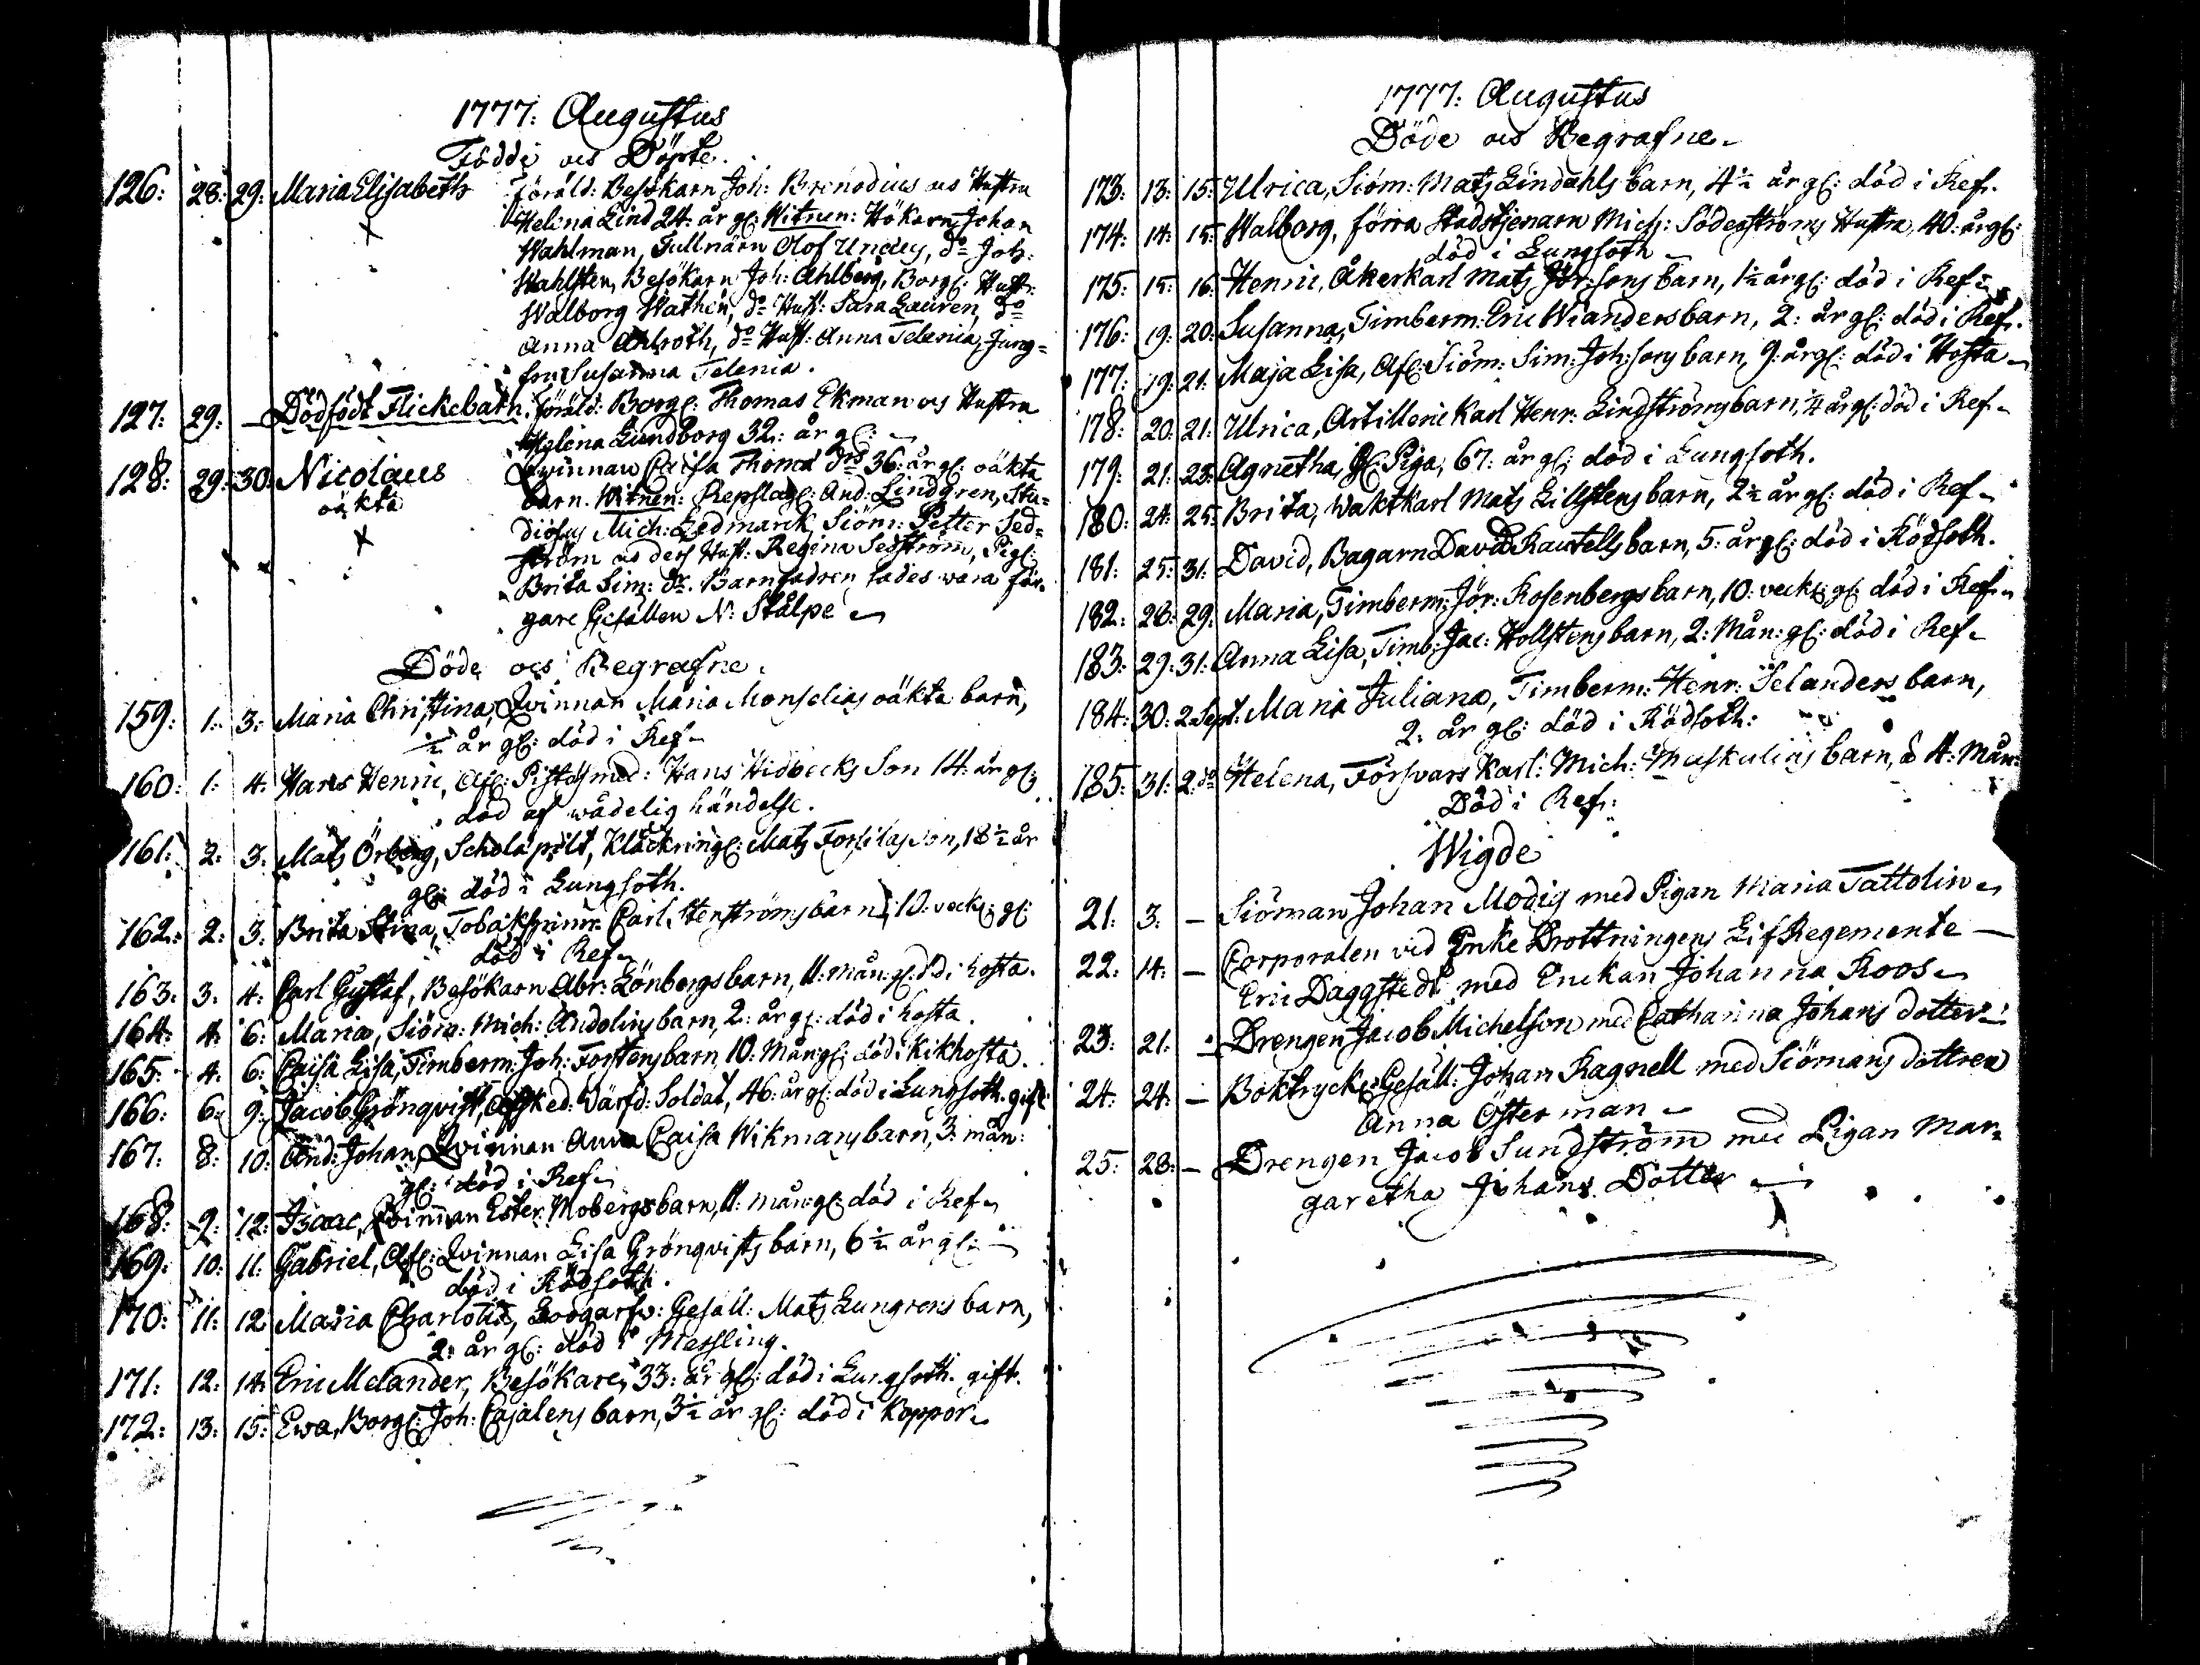 1777: Augustus
Födde och Döpte.
126: 28: 29: Maria Elisabeth föräld: Besökarn Joh: Brenodius och Hustru
Helena Lind 24 år gl: Witnen: Hökarn Johan
Wahlman, Tullnärn Olof Undey, d:o Joh:
Wahlsten, Besökarn Joh: Ahlberg, Borgl: Hustr:
Walborg Wathen, d:o Hust: Sara Lauren, d:o
Anna Ahlroth, d:o Hust: Anna Telenia, Jung=
frun Susanna Telenia.
127: 29: — Dödfödt Flickebarn. föräld: Borgl: Thomas Ekman och Hustru
Helena Lundborg 32: år gl:
128: 29: 30: Nicolaus Qvinnan Caisa Thomæ d:rs 36: år gl: oäkta
oäkta barn. Witnen: Repslag: And: Lindgren, Stu=
diosus Mich: Ledmarck Siöm: Petter Sed=
ström och dess Hust: Regina Sedström, Pig:
Brita Sim: dr. Barnfadren sades wara fär=
gare Gesällen N: Stålpe
Döde och Begrafne.
159: 1: 3: Maria Christina, Qvinnan Maria Monselias oäkta barn,
½ år gl: död i Ref.
160: 1: 4: Hans Henric, Afl: Hans Hidbecks Son 14: år gl:
död af wådelig händelse.
161: 2: 3: Mats Örberg, Schola pilt, Klåckring: Mats Forsilas son, 18½ år
gl: död i Lungsoth.
162: 2: 3: Brita Stina, Tobakspinn: Carl Stenströms barn, 10: veck: gl:
död i Ref.
163: 3: 4: Carl Gustaf, Besökarn Abr: Lönbergs barn, 11: mån: gl: död i hosta.
164: 4: 6: Maria, Siöm: Mich: Andolins barn, 2: år gl: död i hosta.
165: 4: 6: Caisa Lisa, Timberm: Joh: Forstens barn, 10: Mån gl: död i kikhosta.
166: 6: 9: Jacob Grönqvist, Afsked: Värfd: Soldat, 46: år gl: död i Lungsoth. gift
167: 8: 10: And: Johan, Qvinnan Anna Caisa Wikmans barn, 3: mån:
gl: död i Ref.
168: 9: 12: Isaac, Qvinnan Ester Mobergs barn, 11: mån: gl: död i Ref.
169: 10: 11: Gabriel, Afl: Qvinnan Lisa Grönqvists barn, 6½ år gl:
död i Rödsoth.
170: 11: 12 Maria Charlotta, Lodgarfv: Gesäll: Mats Lungrens barn,
2: år gl: död i Messling.
171: 12: 14: Eric Melander, Besökare, 33: år gl: död i Lungsoth. gift.
172: 13: 15: Ewa, Borgl: Joh: Cajalens barn, 3½ år gl: död i Koppor.
1777: Augustus
Döde och Begrafne.
173: 13: 15: Ulrica, Siöm: Mats Lindahls barn, 4½ år gl: död i Ref.
174: 14: 15: Walborg, förra Stadstjenarn Mich: Söderströms Hustru, 40: år gl:
död i Lungsoth
175: 15: 16: Henric, Åkerkarl Mats Jör:sons barn, 1½ år gl: död i Ref.
176: 19: 20: Susanna, Timberm: Eric Wianders barn, 2: år gl: död i Ref.
177: 19: 21: Maja Lisa, Afl: Siöm: Sim: Joh:sons barn, 9: år gl: död i Hosta
178: 20: 21: Ulrica, Artillerie Karl Henr: Lindströms barn, ¼ år gl: död i Ref.
179: 21: 23: Agnetha, gl: Piga, 67: år gl: död i Lungsoth.
180: 24: 25: Brita, Waktkarl Mats Lillstens barn, 2½ år gl: död i Ref.
181: 25: 31: David, Bagarn David Rautells barn, 5: år gl: död i Rödsoth.
182: 28: 29: Maria, Timberm: Jör: Rosenbergs barn, 10: veck: gl: död i Ref.
183: 29: 31: Anna Lisa, Timb: Jac: Hollstens barn, 2: Mån: gl: död i Ref.
184: 30: 2 Sept: Maria Juliana, Timberm: Henr: Selanders barn,
2: år gl: död i Rödsoth:
185: 31: 2 d:o Helena, Försvars Karl: Mich: Muskulins barn, 4: Mån:
Död i Ref:
Wigde
21: 3: — Siöman Johan Modig med Pigan Maria Tattolin
22: 14: — Corporalen vid Enke Drottningens Lif Regemente —
Eric Daggstedt med Enckan Johanna Roos
23: 21: — Drengen Jacob Michelson med Catharina Johans dotter
24: 24: — Boktryck: Gesäll: Johan Ragnell med Siömans dottren
Anna Österman
25: 28: — Drengen Jacob Sundström med Pigan Mar=
garetha Johans Dotter